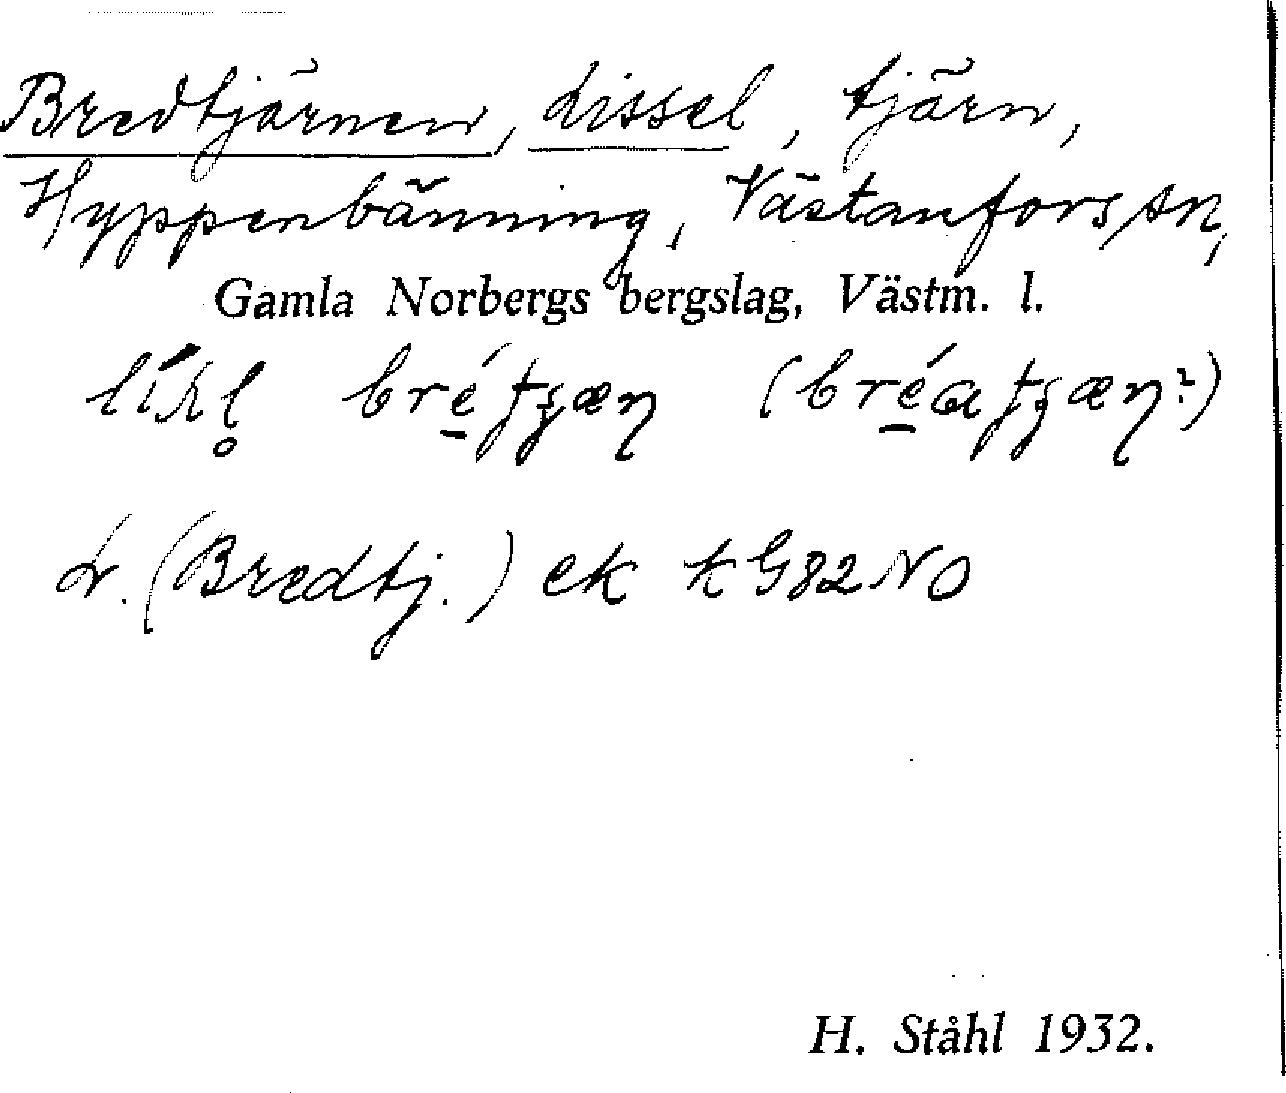 Bredtjärnen, Lissel, tjärn,
Hyppenbänning, Västanfors sn,
Gamla Norbergs bergslag, Västm. l.
L. (Bredtj.) ek k G82 NO
H. Ståhl 1932.